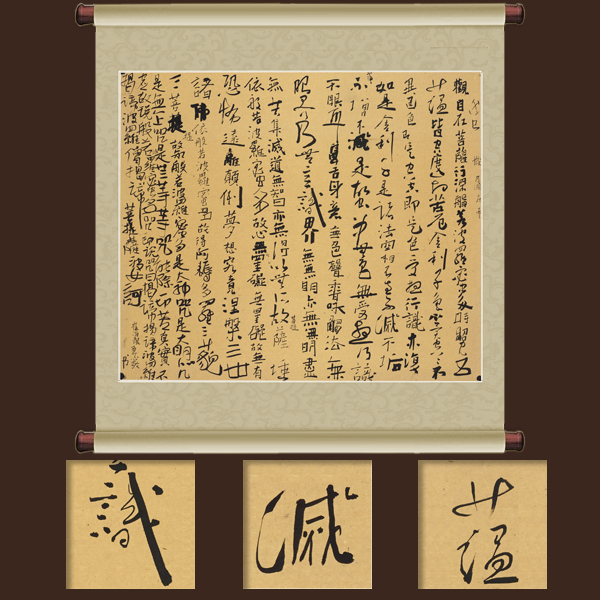 觀自在菩薩行深般若波羅蜜多時照見五
蘊皆空度一切苦厄舍利子色不異空空不
異色色即是空空即是色受想行識亦復
如是舍利子是諸法空相不生不滅不垢
不增不減是故空中無色無受想行識
無眼耳鼻舌身意無色聲香味觸法無
眼界乃至無意識界無無明亦無無明盡
無苦集滅道無智亦無得以無所得故菩薩埵
依般若波羅蜜多故心無罣礙無罣礙故無有
恐怖遠離顛倒夢想究竟涅槃三世
諸佛依般若波羅蜜多故得阿耨多羅三藐
三菩提故知般若波羅蜜多是大神咒是大明咒
是無上咒是無等等咒能除一切苦真實不
虛故說般若波羅蜜多咒即說咒曰揭諦揭諦波羅
揭諦波羅僧揭諦菩提薩婆訶
識
滅
蘊